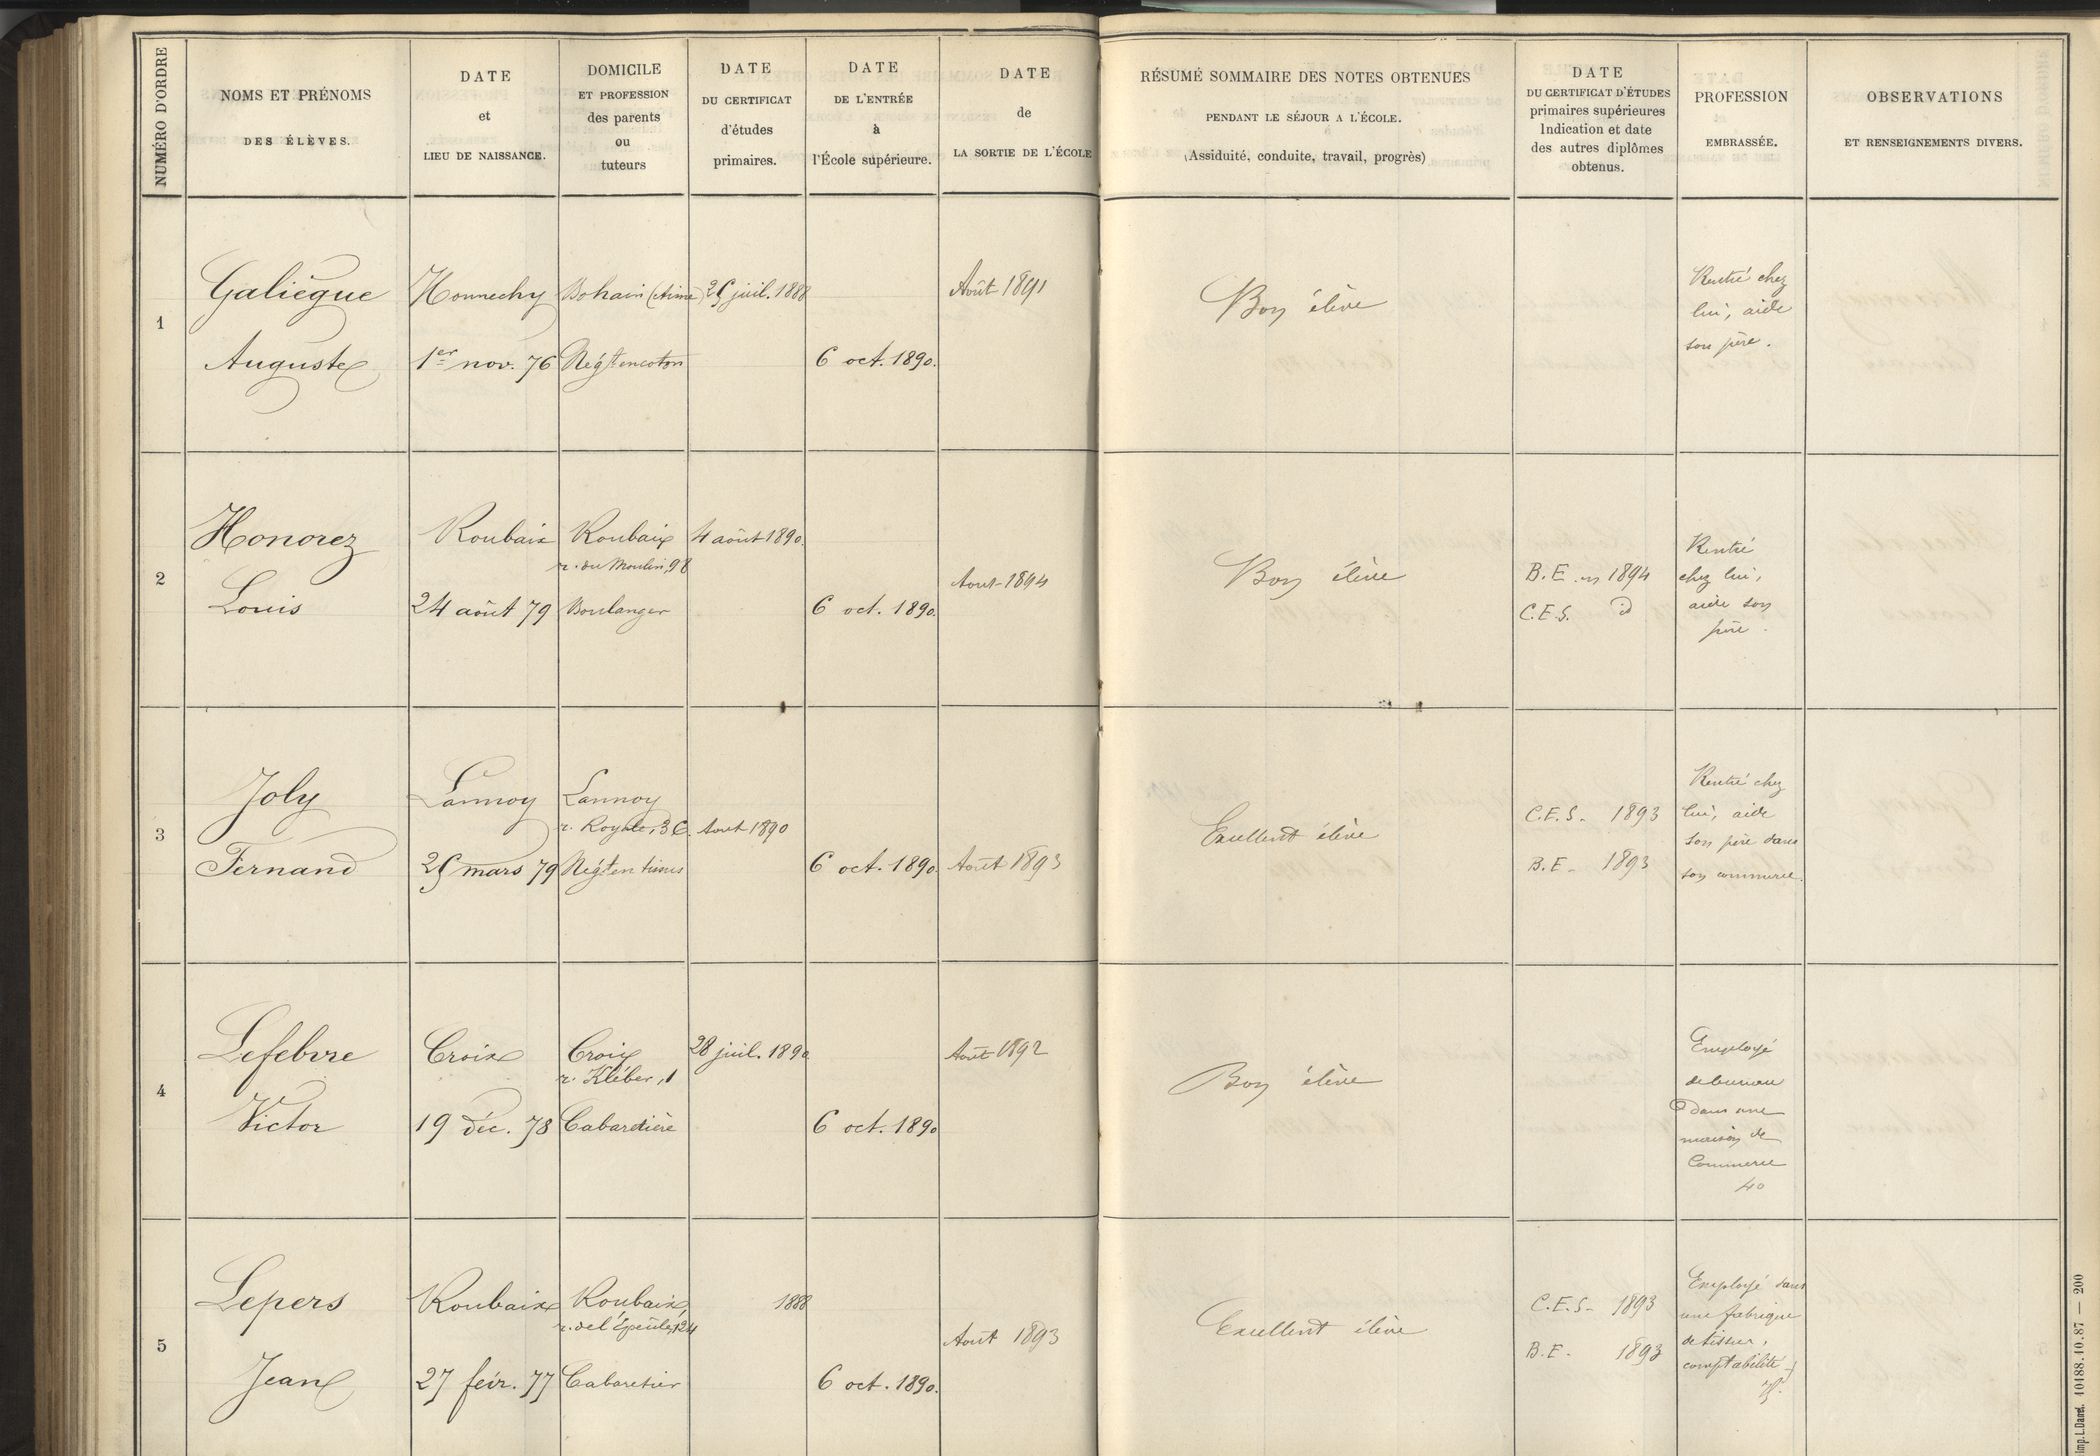 NUMÉRO D'ORDRE
NOMS ET PRÉNOMS
DES ÉLÈVES.
DATE
et
LIEU DE NAISSANCE.
DOMICILE
ET PROFESSION
des parents
ou
tuteurs
DATE
DU CERTIFICAT
d'études
primaires.
DATE
DE L'ENTRÉE
à
l'École supérieure.
DATE
de
LA SORTIE DE L'ÉCOLE
RÉSUMÉ SOMMAIRE DES NOTES OBTENUES
PENDANT LE SÉJOUR A L'ÉCOLE.
(Assiduité, conduite, travail, progrès)
DATE
DU CERTIFICAT D'ÉTUDES
primaires supérieures
Indication et date
des autres diplômes
obtenus.
PROFESSION
EMBRASSÉE.
OBSERVATIONS
ET RENSEIGNEMENTS DIVERS.
1
Galiègue
Auguste
Honnechy
1er nov. 76
Bohain (Aisne)
Négt en coton
25 juil. 1888
6 oct. 1890.
Août 1891
Bon élève
Rentré chez
lui, aide
son père.
2
Honorez
Louis
Roubaix
24 août 79
Roubaix
r. du Moulin, 98
Boulanger
4 août 1890.
6 oct. 1890.
Aout 1894
Bon élève
B.E. en 1894
C.E.S. d
Rentré
chez lui,
aide son
père.
3
Joly
Fernand
Lannoy
25 mars 79
Lannoy
r. Royale, 36.
Négt en tissus
Aout 1890
6 oct. 1890.
Août 1893
Excellent élève
C.E.S. - 1893
B.E - 1893
Rentré chez
lui, aide
son père dans
son commerce.
4
Lefebvre
Victor
Croix
19 déc. 78
Croix
r. Kléber, 1
Cabaretière
28 juil. 1890
6 oct. 1890
Août 1892
Bon élève
Employé
de bureau
dans une
maison de
Commerce
40
5
Lepers
Jean
Roubaix
27 févr. 77
Roubaix,
r. de l'Épeule, 124
Cabaretier
1888
6 oct. 1890.
Août 1893
Excellent élève
C.E.S - 1893
B.E - 1893
Employé dans
une fabrique
de tissus,
comptabilité
Imp. L. Danel. 10188.10.87 — 200